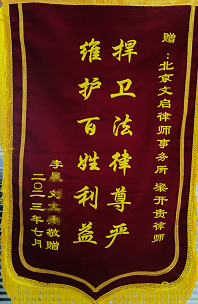 赠：北京文启律师事务所 梁开贵律师
捍卫法律尊严
维护百姓利益
李 刘 敬赠
二〇二三年七月